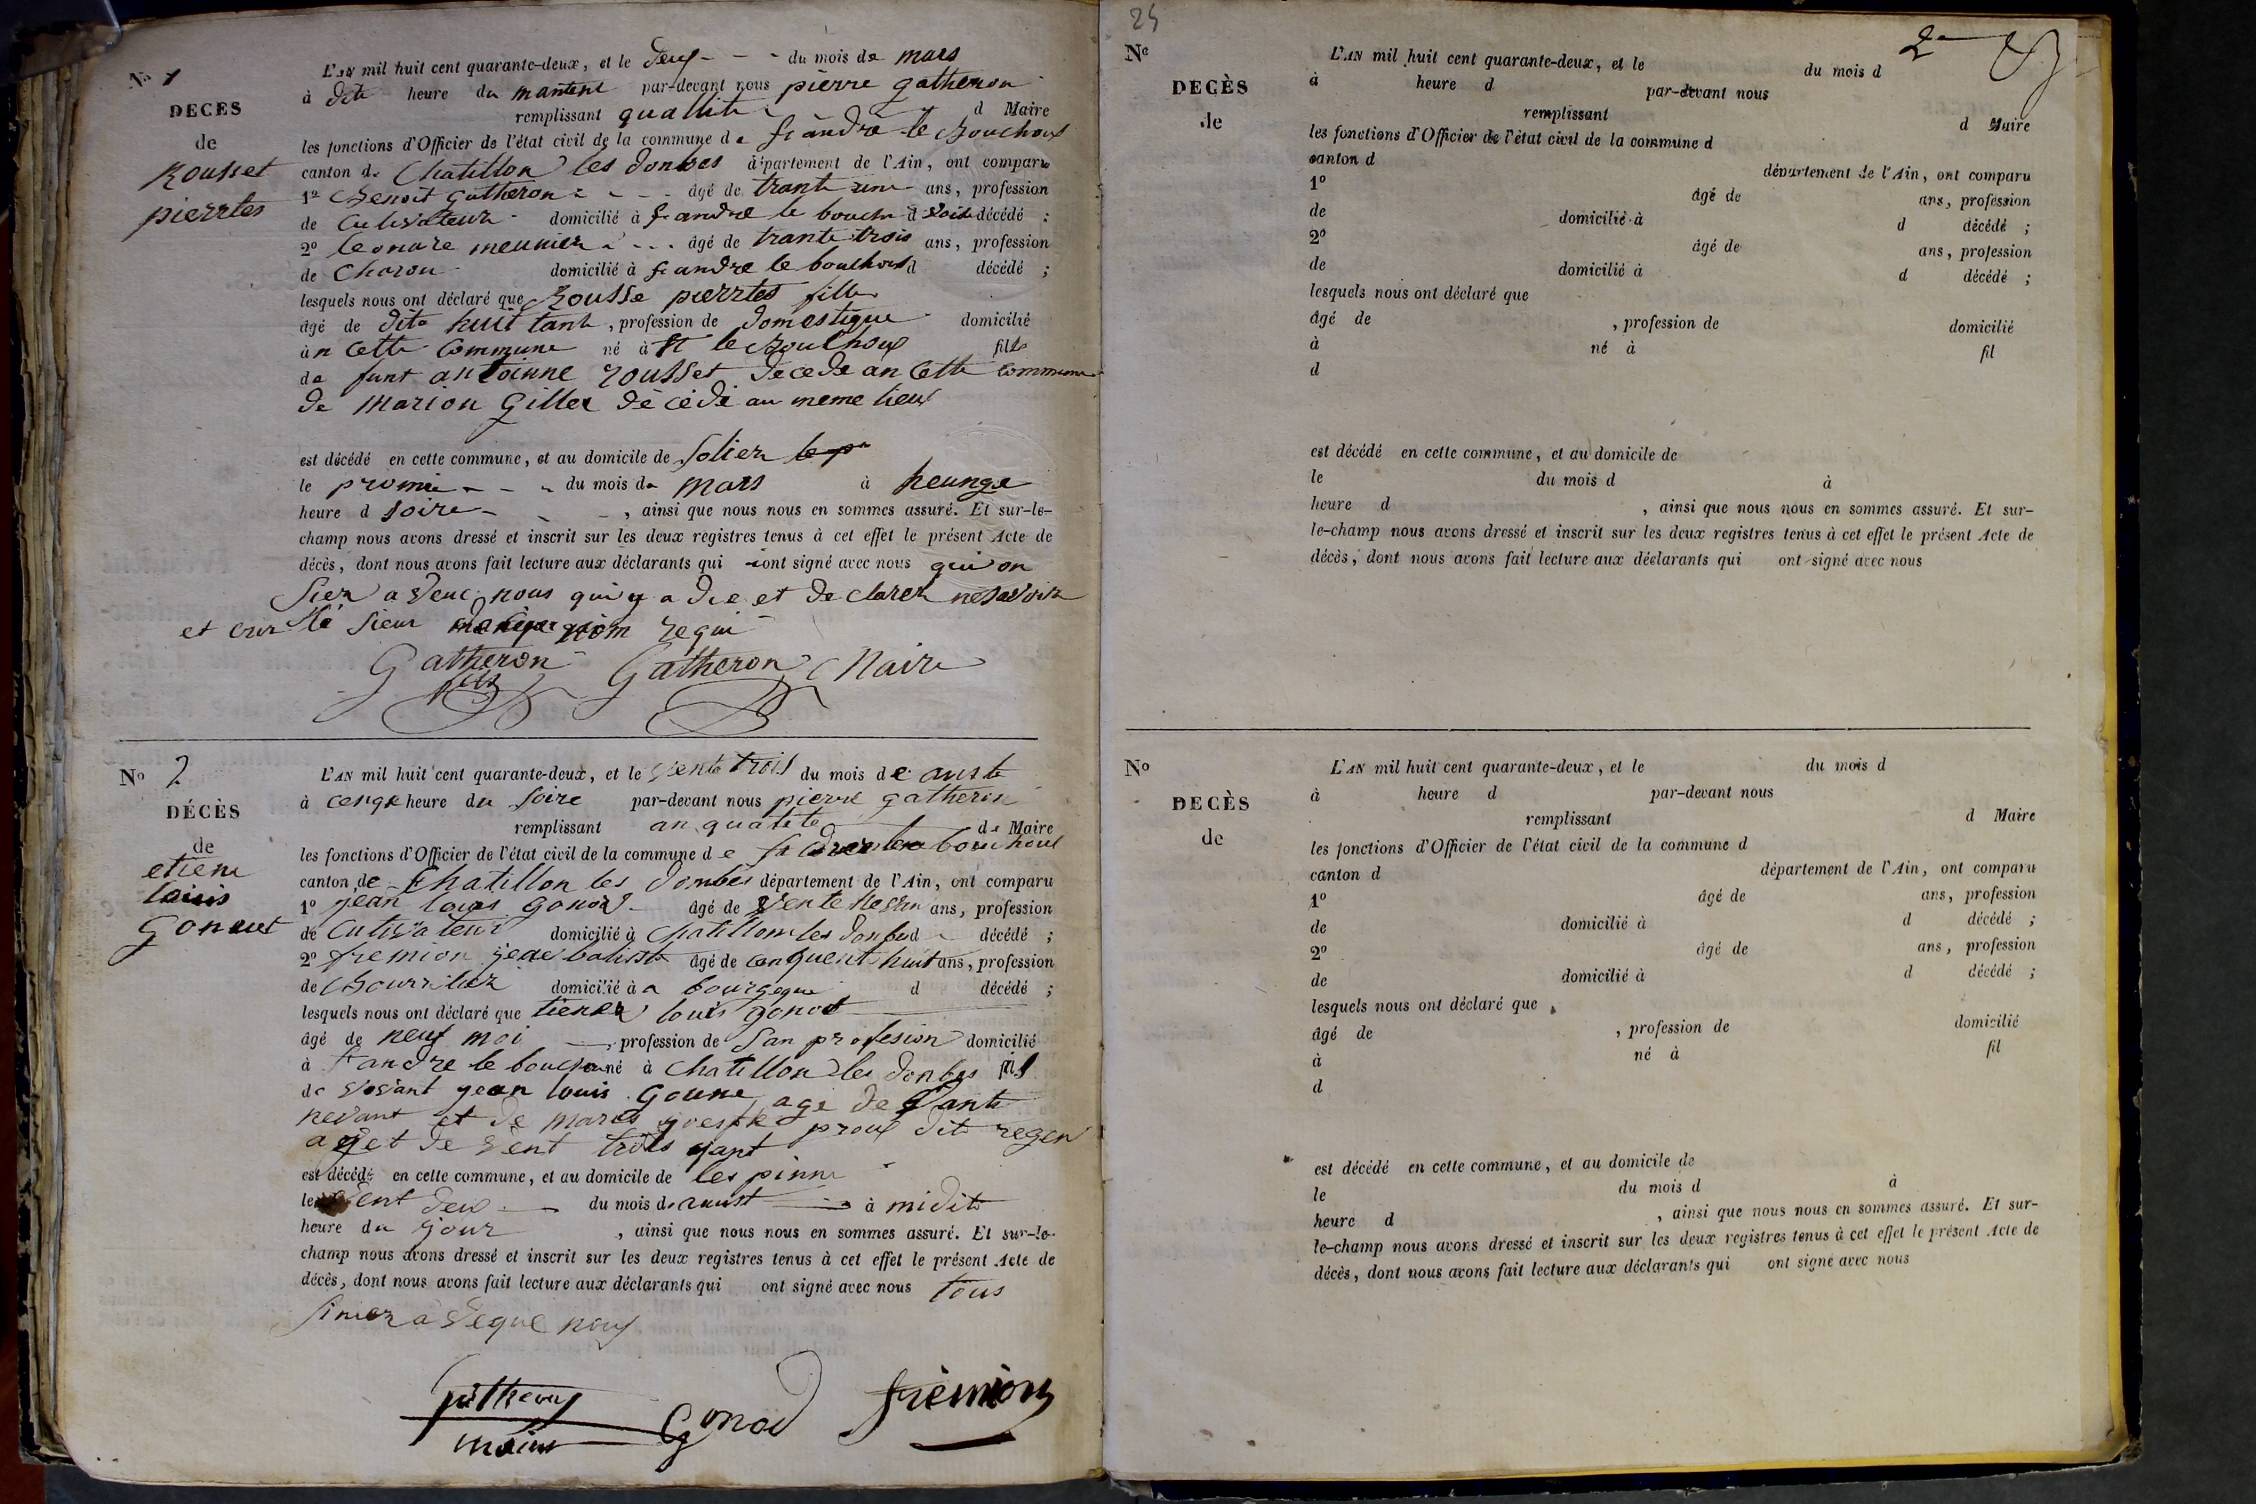 No 1
DECES
de
Rousset
pierrtes
L'AN mil huit cent quarante-deux, et le deux du mois de mars
à dite heure du mantent par-devant nous pierre gatheron
remplissant quallite d Maire
les fonctions d'Officier de l'état civil de la commune de st àndrè le Bouchoux
canton de Chatillon les donbes département de l'Ain, ont comparu
1º Benoit gatheron âgé de trante une ans, profession
de Cultivateur domicilié à st andre le bouchu d décédé ;
2º leonare meunier âgé de trante trois ans, profession
de Charon domicilié à st andre le bouchoud décédé ;
lesquels nous ont déclaré que Rousse pierrtes fille
âgé de dite huit tant, profession de domestique domicilié
àn cette commune né à st le Bouchoux fille
de funt antoinne rousset decede an cette commune
de marion Giller dècèdè au meme lieux
est décédé en cette commune, et au domicile de solier
le promie du mois de mars à heunge
heure d soire, ainsi que nous nous en sommes assuré. Et sur-le-
champ nous avons dressé et inscrit sur les deux registres tenus à cet effet le présent Acte de
décès, dont nous avons fait lecture aux déclarants qui ont signé avec nous qui on
sier a veuc nous qui y a die et declarer nesavoir
et sieur requi
Gatheron Gatheron Maire
fils
No 2
DÉCÈS
de
etiene
louis
Gonuet
L'AN mil huit cent quarante-deux, et le vente trois du mois de auste
à cenqe heure du soire par-devant nous pierre gatheron
remplissant an qualite de Maire
les fonctions d'Officier de l'état civil de la commune de st bouchoul
canton de Chatillon les donbes département de l'Ain, ont comparu
1º jean louis gonod âgé de vente ans, profession
de Cultivateur domicilié à Chatillon les donbesd décédé ;
2º fremion batiste âgé de cenquente huit ans, profession
de Bourrlier domicilié à a bourgogne d décédé ;
lesquels nous ont déclaré que tiener louis gonot
âgé de neuf moi, profession de san profesion domicilié
à st andre le bouchou né à Chatillon les donbes fils
de vivant jean louis Goune age de
et de proux dite
aget de vent trois yant
est décédé en cette commune, et au domicile de les pinne
le vent deux du mois de auust à midite
heure du jour, ainsi que nous nous en sommes assuré. Et sur-le-
champ nous avons dressé et inscrit sur les deux registres tenus à cet effet le présent Acte de
décès, dont nous avons fait lecture aux déclarants qui ont signé avec nous tous
siner a veque nous
gatheron Gonod frèmion
maire
24
2
No
DECÈS
de
L'AN mil huit cent quarante-deux, et le du mois d
à heure d par-devant nous
remplissant d Maire
les fonctions d'Officier de l'état civil de la commune d
canton d département de l'Ain, ont comparu
1º âgé de ans, profession
de domicilié à d décédé ;
2º âgé de ans, profession
de domicilié à d décédé ;
lesquels nous ont déclaré que
âgé de , profession de domicilié
à né à fil
d
est décédé en cette commune, et au domicile de
le du mois d à
heure d , ainsi que nous nous en sommes assuré. Et sur-
le-champ nous avons dressé et inscrit sur les deux registres tenus à cet effet le présent Acte de
décès, dont nous avons fait lecture aux déclarants qui ont signé avec nous
No
DECÈS
de
L'AN mil huit cent quarante-deux, et le du mois d
à heure d par-devant nous
remplissant d Maire
les fonctions d'Officier de l'état civil de la commune d
canton d département de l'Ain, ont comparu
1º âgé de ans, profession
de domicilié à d décédé ;
2º âgé de ans, profession
de domicilié à d décédé ;
lesquels nous ont déclaré que
âgé de , profession de domicilié
à né à fil
d
est décédé en cette commune, et au domicile de
le du mois d à
heure d , ainsi que nous nous en sommes assuré. Et sur-
le-champ nous avons dressé et inscrit sur les deux registres tenus à cet effet le présent Acte de
décès, dont nous avons fait lecture aux déclarants qui ont signé avec nous